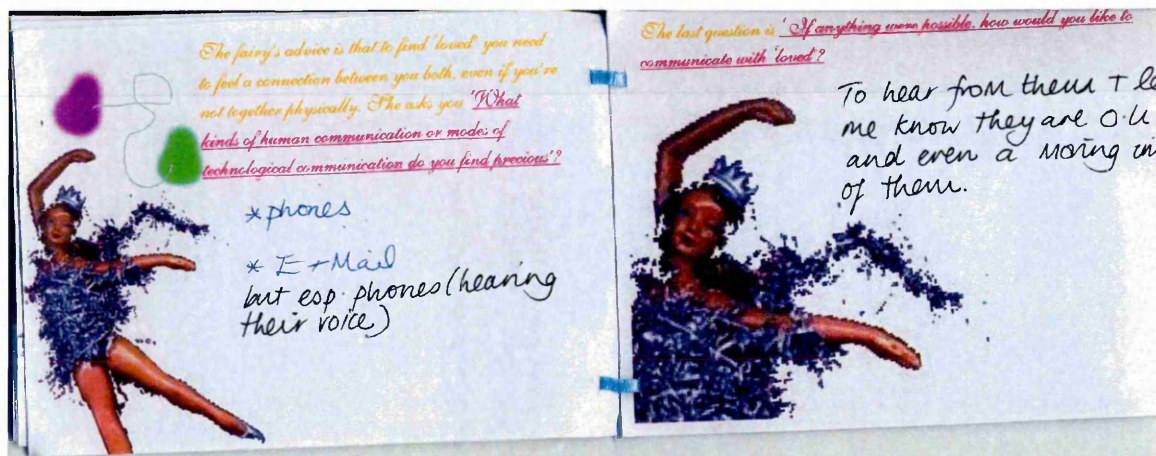 The fairy's advice is that to find 'loved' you need
to feel a connection between you both, even if you're
not together physically. She asks you 'What
kinds of human communication or modes of
technological communication do you find precious'?
* phones
* E-Mail
but esp. phones (hearing
their voice)
The last question is 'If anything were possible, how would you like to
communicate with 'loved'?
To hear from them + le
me know they are O.K
and even a moving im
of them.